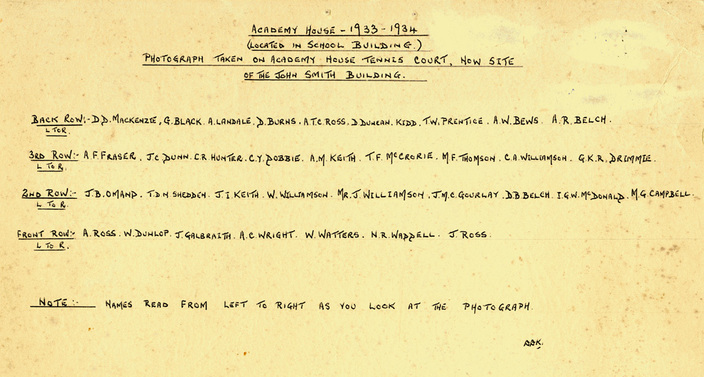 ACADEMY HOUSE - 1933 - 1934
(LOCATED IN SCHOOL BUILDING.)
PHOTOGRAPH TAKEN ON ACADEMY HOUSE TENNIS COURT, NOW SITE
OF THE JOHN SMITH BUILDING.
BACK ROW:- D.D. MACKENZIE, G. BLACK. A. LANDALE. D. BURNS. A.T.C. ROSS. D. DUNCAN. KIDD. T.W. PRENTICE. A.W. BEWS. A.R. BELCH.
L TO R.
3RD ROW:- A.F. FRASER. J.C. DUNN. C.R. HUNTER. C.Y. DOBBIE. A.M. KEITH. T.F. McCRORIE. M.F. THOMSON. C.A. WILLIAMSON. G.K.R. DRIMMIE.
L TO R.
2ND ROW:- J.B. OMAND. T.D.N. SHEDDEN. J.I. KEITH. W. WILLIAMSON. MR. J. WILLIAMSON. J.M.C. GOURLAY. D.B. BELCH. I.G.W. McDONALD. M.G. CAMPBELL.
L TO R.
FRONT ROW:- A. ROSS. W. DUNLOP. J. GALBRAITH. A.C. WRIGHT. W. WATTERS. N.R. WADDELL. J. ROSS.
L TO R.
NOTE:- NAMES READ FROM LEFT TO RIGHT AS YOU LOOK AT THE PHOTOGRAPH.